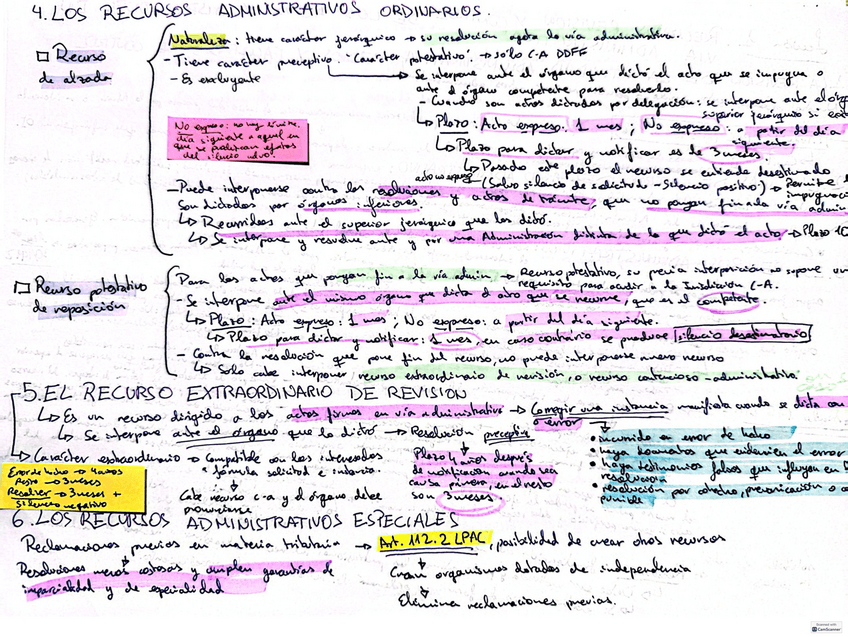 4. LOS RECURSOS ADMINSTRATIVOS ORDINARIOS.
□ Recurso de alzada
Naturaleza: tiene carácter jerárquico → su resolución agota la vía administrativa.
- Tiene carácter preceptivo. "Carácter potestativo" → sólo C-A DDFF
- Es excluyente
→ Se interpone ante el órgano que dictó el acto que se impugna o
ante el órgano competente para resolverlo.
- Cuando son actos dictados por delegación: se interpone ante el
superior jerárquico si
↳ Plazo: Acto expreso: 1 mes; No expreso: a partir del día
siguiente.
↳ Plazo para dictar y notificar es de 3 meses.
↳ Pasado este plazo el recurso se entiende desestimado
acto no expreso
(Salvo silencio de solicitud - Silencio positivo) →
No expreso: no hay límite.
día siguiente a aquel en
que se produzcan efectos
del silencio advo.
- Puede interponerse contra las resoluciones y actos de trámite, que no pongan fin a la vía admin
Son dictados por órganos inferiores.
↳ Recurridos ante el superior jerárquico que los dictó.
↳ Se interpone y resuelve ante y por una Administración distinta de la que dictó el acto → Plazo
□ Recurso potestativo
de reposición
Para los actos que pongan fin a la vía admin → Recurso potestativo, su previa interposición no supone un
requisito para acudir a la Jurisdicción C-A.
- Se interpone ante el mismo órgano que dicta el acto que se recurre, que es el competente.
↳ Plazo: Acto expreso: 1 mes; No expreso: a partir del día siguiente.
↳ Plazo para dictar y notificar: 1 mes, en caso contrario se produce silencio desestimatorio
- Contra la resolución que pone fin del recurso, no puede interponerse nuevo recurso
↳ Solo cabe interponer, recurso extraordinario de revisión, o recurso contencioso-administrativo
5. EL RECURSO EXTRAORDINARIO DE REVISION
↳ Es un recurso dirigido a los actos firmes en vía administrativa → Corregir una instancia manifiesta cuando se dicta con
o error
↳ Se interpone ante el órgano que lo dictó → Resolución preceptiva
→ Carácter extraordinario → Compatible con los interesados
fórmula solicitud e instancia.
Cabe recurso c-a y el órgano debe
pronunciarse
Plazo 4 años después
de notificación cuando sea
causa primera, en el resto
son 3 meses.
• incurrido en error de hecho
• haya documentos que evidencien el error
• haya testimonios falsos que influyan en
resolución
• resolución por cohecho, prevaricación o
punible
Error de hecho → 4 años
Resto → 3 meses
Resolver → 3 meses +
Silencio negativo
6. LOS RECURSOS ADMINISTRATIVOS ESPECIALES
Reclamaciones previas en materia tributaria → Art. 112.2 LPAC, posibilidad de crear otros recursos
Resoluciones menos costosas y cumplen garantías de
imparcialidad y de especialidad
Crean organismos dotados de independencia
Elimina reclamaciones previas.
Scanned with
CamScanner